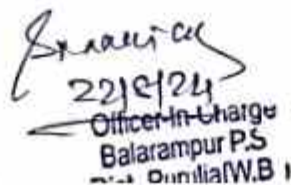 22/8/24
Officer-In-Charge
Balarampur P.S
Dist. Purulia(W.B